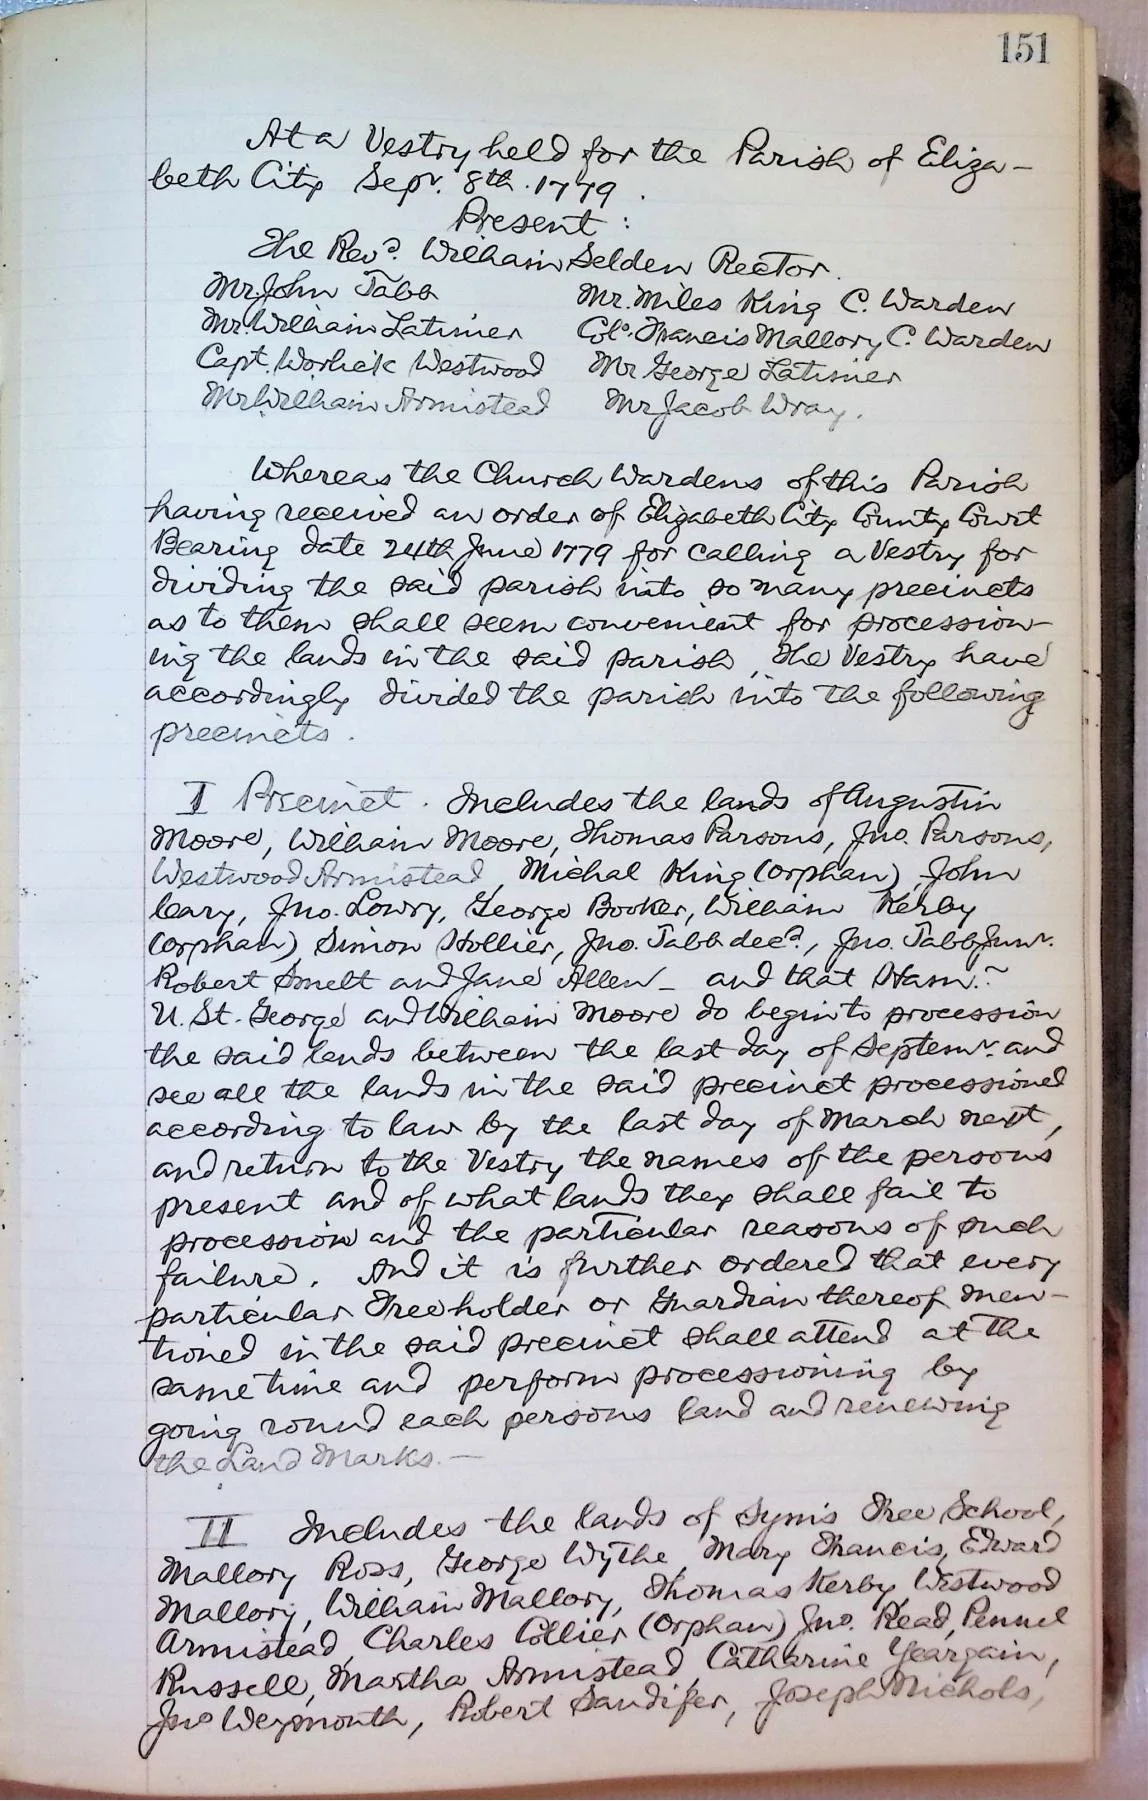 151
At a Vestry held for the Parish of Eliza-
beth City Sepr. 8th. 1779.
Present :
The Revd. William Selden Rector.
Mr. John Tabb Mr. Miles King C. Warden
Mr. William Latimer Colo. Francis Mallory C. Warden
Capt. Worlick Westwood Mr George Latimer
Mr William Armistead Mr Jacob Wray.
Whereas the Church Wardens of this Parish
having received an order of Elizabeth City County Court
Bearing date 24th June 1779 for calling a Vestry for
dividing the said parish into so many precincts
as to them shall seem convenient for procession-
ing the lands in the said parish, The Vestry have
accordingly divided the parish into the following
precincts.
I Precinct. Includes the lands of Augustin
Moore, William Moore, Thomas Parsons, Jno. Parsons,
Westwood Armistead, Michal King (orphan), John
Cary, Jno. Lowry, George Booker, William Kerby
(orphan) Simon Hollier, Jno. Tabb decd., Jno. Tabb Junr.
Robert Smelt and Jane Allen - and that Ham.
U. St. George and William Moore do begin to procession
the said lands between the last day of Septemr. and
see all the lands in the said precinct processioned
according to law by the last day of March next,
and return to the Vestry the names of the persons
present and of what lands they shall fail to
procession and the particular reasons of such
failure. And it is further ordered that every
particular Freeholder or Guardian thereof men-
tioned in the said precinct shall attend at the
same time and perform processioning by
going round each persons land and renewing
the Land Marks. -
II Includes the lands of Syms Free School,
Mallory Ross, George Wythe, Mary Francis, Edward
Mallory, William Mallory, Thomas Kerby, Westwood
Armistead, Charles Collier (Orphan) Jno. Read, Pennel
Russell, Martha Armistead, Catharine Yeargain,
Jno Weymouth, Robert Sandifer, Joseph Nichols,